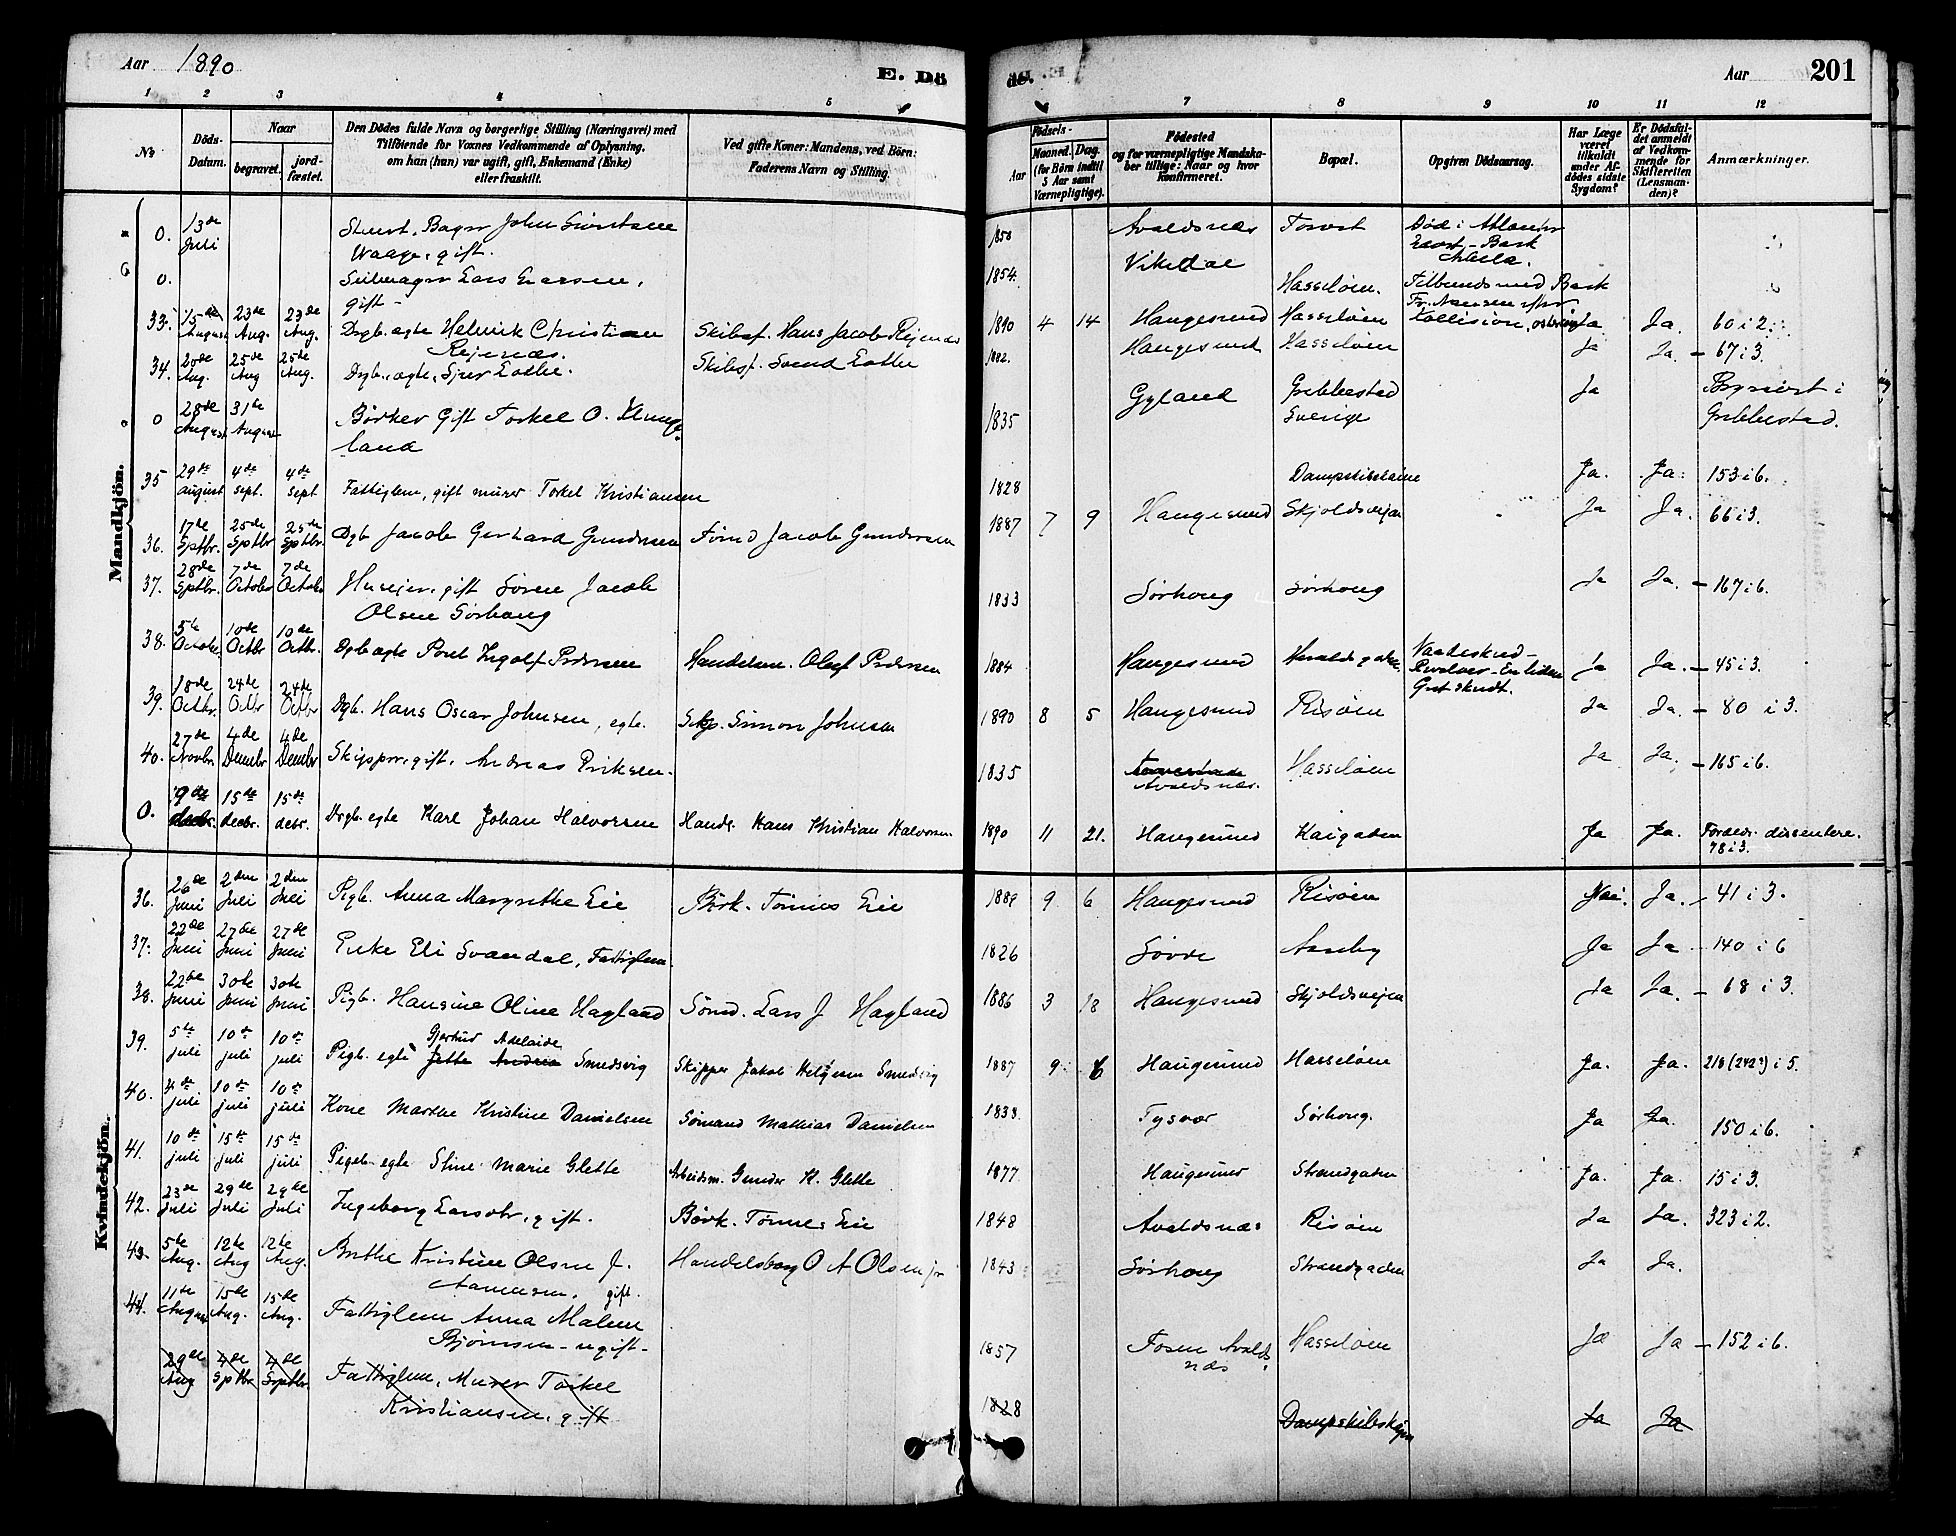 Aar 1890
E. Dö
de.
Aar
201
1 2 3 4 5 6 7 8 9 10 11 12
No
Döds-Datum.
Naar
begravet.
jord-fæstet.
Den Dödes fulde Navn og borgerlige Stilling (Næringsvei) med
Tilföiende for Voxnes Vedkommende af Oplysning,
om han (hun) var ugift, gift, Enkemand (Enke)
eller fraskilt.
Ved gifte Koner: Mandens, ved Börn:
Faderens Navn og Stilling.
Födsels-
Aar
Maaned. Dag.
(for Börn indtil
5 Aar samt
Værnepligtige).
Födested
og for værnepligtige Mandska-
ber tillige: Naar og hvor
konfirmeret.
Bopæl.
Opgiven Dödsaarsag.
Har Læge
været
tilkaldt
under Af-
dödes sidste
Sygdom?
Er Dödsfal-
det anmeldt
af Vedkom-
mende for
Skifteretten
(Lensman-
den)?
Anmærkninger.
Mandkjön.
0. 13de Juli John Waage, gift. 1858 Avaldsnæs Død i
0. Lars Larsen, gift - 1854 Vikedal Hasseløen. Bark Kollision,
33. 15de August 23de Aug. 23de Aug. Drgb. egte Helmik Christian Reinæs. Skibsf. Hans Jacob Reinæs 1890 4 14 Haugesund Hasseløen Ja Ja. 60 i 2.
34. 20de Aug. 25de Aug 25de Aug. Drgb. egte, Sjur Eothe. Skibsf. Svend Eothe 1882. Haugesund Hasseløen Ja Ja. - 67 i 3.
0 28de August 31te August Bødker Gift Torkel O. land 1835 Gyland Grebbestad Sverige Ja Begravet i Grebbestad.
35 29de august 4de sept. 4de sept Fattiglem, gift murer Torkel Kristiansen 1828 Ja. Ja. 153 i 6.
36. 17de Sptbr. 25de Sptbr 25de Sptbr. Dgb Jacob Gerhard Gundersen Sömd Jacob Gundersen 1887 7 9 Haugesund Skjoldsvejen Ja Ja. 66 i 3.
37. 28de Sptbr. 7de October 7de October Husejer, gift Sören Jacob Olsen Sörhoug 1833 Sørhoug Sörhoug Ja Ja. - 167 i 6.
38. 5te October 10de Octbr 10de Octbr. Dgb. egte Poul Ingolf Pedersen Handelsm. Oluf Pedersen 1884 Haugesund Haraldsgaden. Vaadeskud - Revolver - Ja Ja. - 45 i 3.
39. 18de Octbr. 24de Octbr 24de Octbr Dgb. Hans Oscar Johnsen, egte. Skp. Simon Johnsen 1890 8 5 Haugesund Risøen Ja Ja. - 80 i 3.
40. 27de Novbr. 4de Decmbr 4de Decmbr Skipper, gift, Andreas Eriksen. 1835 Avaldsnæs. Hasseløen Ja Ja. - 165 i 6.
0. 9de decbr. 15de decbr. 15de decbr. Drgb. egte Karl Johan Halvorsen Handl. Hans Kristian Halvorsen 1890 11 21. Haugesund Kaigaden Ja Ja. Foræld. dissentere. 78 i 3.
Kvindekjön.
36. 26de Juni 2den Juli 2den Juli Pigb. Anna Margrethe Eie Börk. Tönnes Eie 1889 9 6 Haugesund Risøen Nei. Ja. - 41 i 3.
37. 22de Juni 27de Juni 27de Juni Enke Eli Svandal, Fattiglem. 1826 Søvde Aasby Ja Ja - 140 i 6
38. 22de Juni 30te Juni 30te Juni Pigb. Hansine Oline Hagland Sömd. Lars J Hagland 1886 3 18 Haugesund Skjoldsvejen Ja Ja. - 68 i 3.
39. 5te juli 10de juli 10de juli Pigb. egte Jette Andrea Gjertrud Adelaide Smedsvig Skipper Jakob Helgesen Smedsvig 1887 9 6 Haugesund Hasseløen Ja. Ja. 218 (242?) i 5.
40. 4de juli 10de juli 10de juli Kone Marthe Kristine Danielsen Sømand Mathias Danielsen 1833 Tysvær Sørhoug. Ja Ja. 150 i 6.
41. 10de juli 15de juli 15de juli Pigeb. egte Stine Marie Glette Arbeidsm. Gunder K. Glette 1877 Haugesund Strandgaden Ja. Ja. 15 i 3.
42. 23de Juli 29de Juli 29de Juli Ingeborg Larsdtr. gift. Børk. Tönnes Eie 1848 Avaldsnæs Risøen Ja Ja. 323 i 2.
43. 5te Aug. 12te Aug 12te Aug. Berthe Kristine Olsen f. Aanensen, gift. Handelsborg O A Olsen jr 1843 Sørhoug Strandgaden Ja Ja.
44. 11te August 15de Aug. 15de Aug. Fattiglem Anna Malene Bjørnsen - ugift - 1857 Fosen Avaldsnæs Hasseløen Ja Ja - 152 i 6.
29de Aug 4de Sptbr 4de Septbr. Fattiglem, Murer Torkel Kristiansen, gift 1828 Dampskibskajen Ja Ja